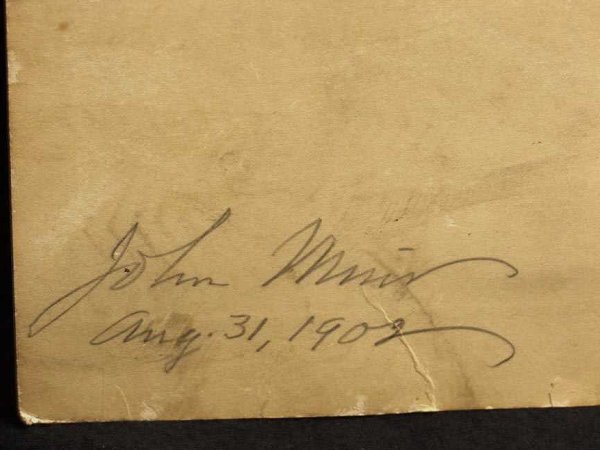 John Muir
Aug. 31, 1902